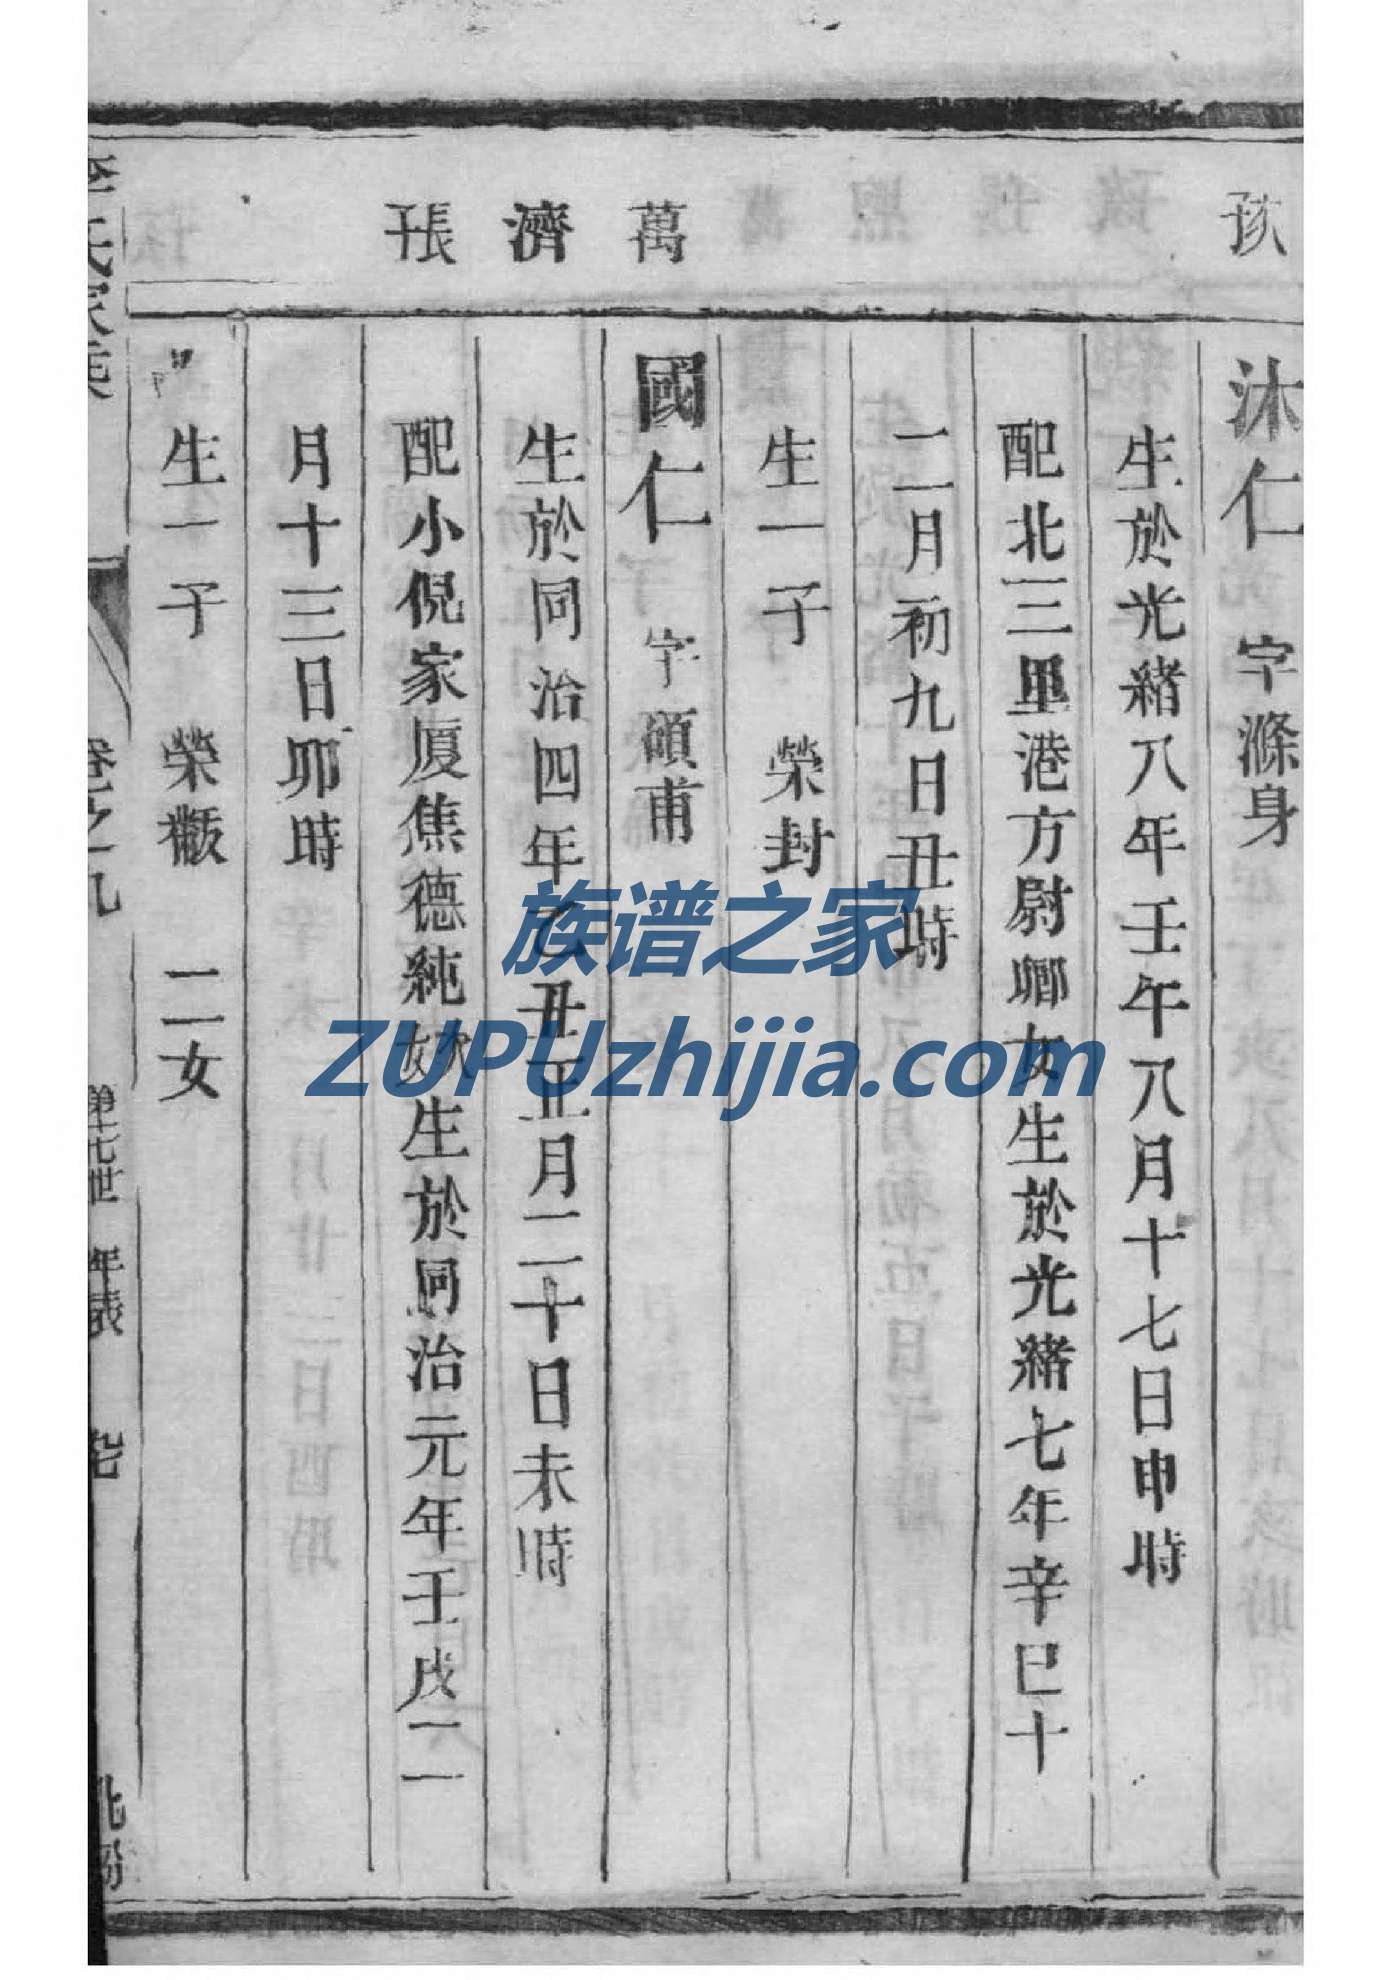 孩
沐仁 字滌身
生於光緒八年壬午八月十七日申時
配北三里港方尉卿女生於光緒七年辛巳十
二月初九日丑時
生一子 榮封
萬
濟
長子
國仁 字碩甫
生於同治四年乙丑正月二十日未時
配小倪家厦焦德純妏生於同治元年壬戌二
月十三日卯時
生一子 榮黻 二女
氏家
卷之九
第七世 年表
族谱之家
ZUPUzhijia.com